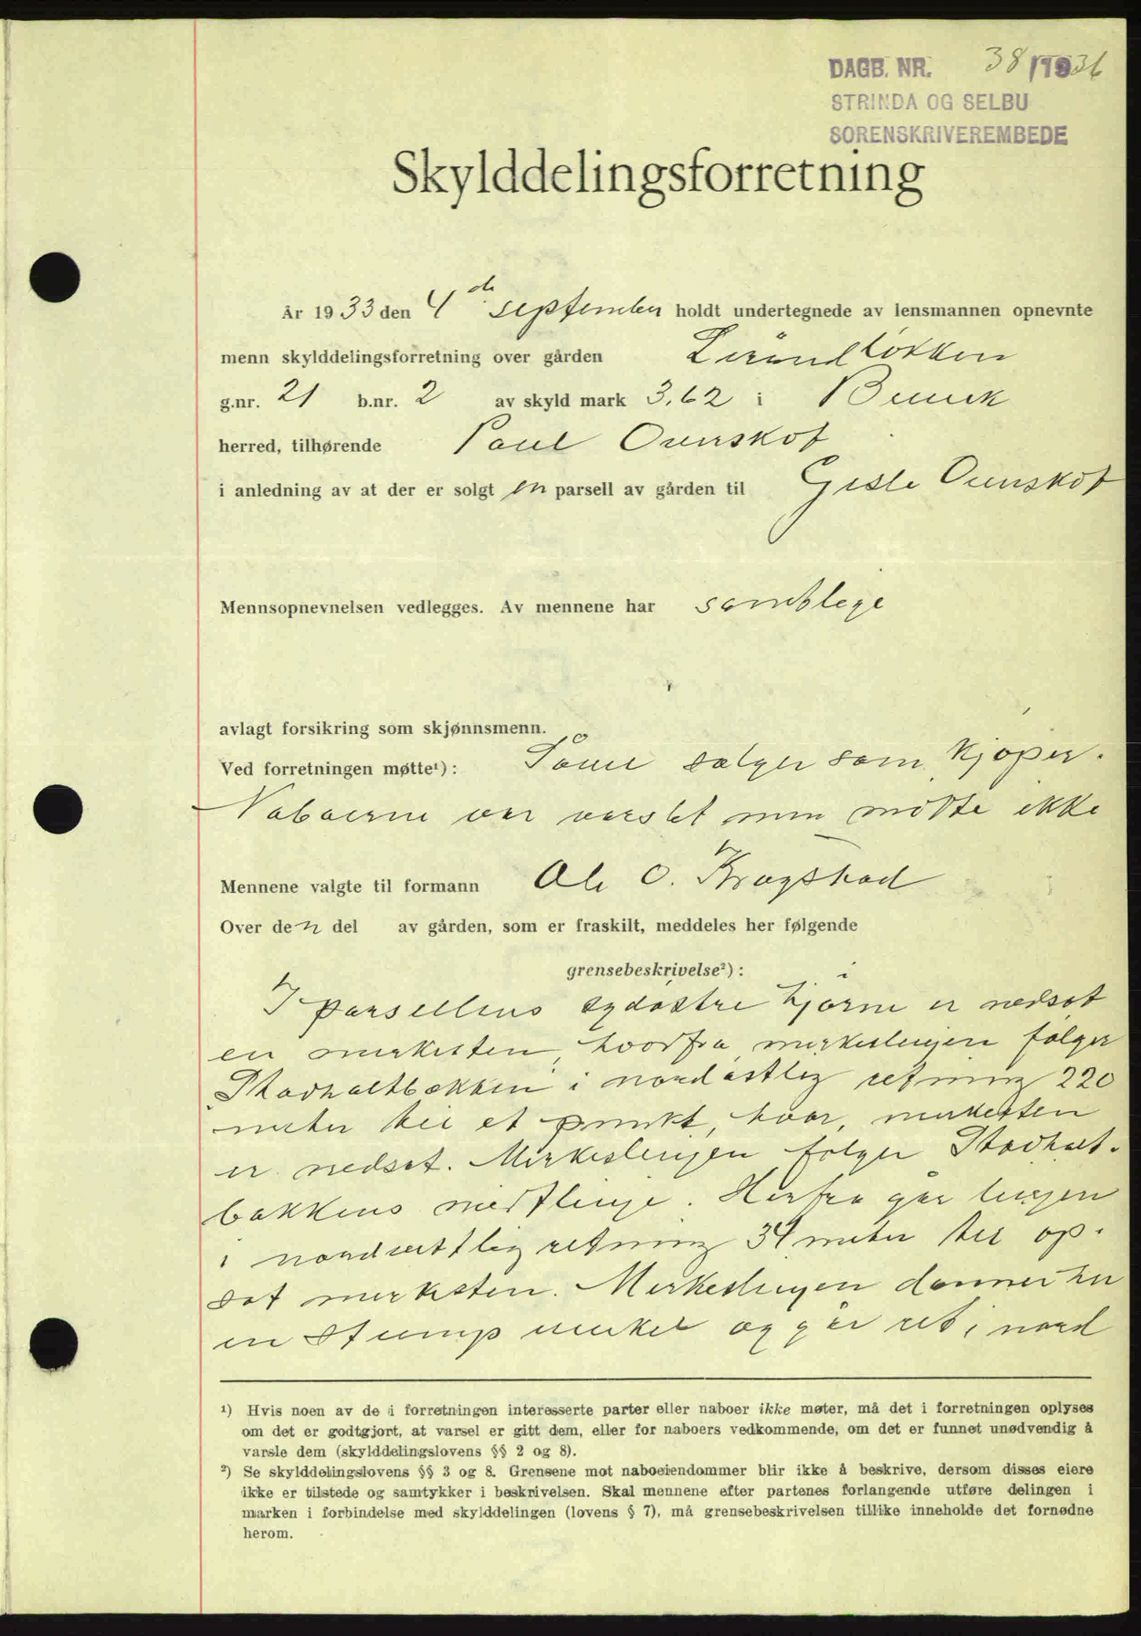 DAGB. NR. 38/1936
STRINDA OG SELBU
SORENSKRIVEREMBEDE
Skylddelingsforretning
År 1933 den 4de september holdt undertegnede av lensmannen opnevnte
menn skylddelingsforretning over gården
g.nr. 21 b.nr. 2 av skyld mark 3,62 i
herred, tilhørende Paul Ovenskof
i anledning av at der er solgt en parsell av gården til Gisle Ovenskof
Mennsopnevnelsen vedlegges. Av mennene har samtlige
avlagt forsikring som skjønnsmenn.
Ved forretningen møtte¹): Såvel selger som kjøper.
Naboerne var varslet men møtte ikke
Mennene valgte til formann Ole O. Kragstad
Over den del av gården, som er fraskilt, meddeles her følgende
grensebeskrivelse²):
I parsellens sydøstre hjørne er nedsat
en merkesten, hvorfra merkeslinjen følger
Stadhaltbekken i nordøstlig retning 220
meter til et punkt, hvor merkesten
er nedsat. Merkeslinjen følger Stadhalt-
bekkens midtlinje. Herfra går linjen
i nordvestlig retning 34 meter til op-
sat merkesten. Merkeslinjen danner her
en stump vinkel og går ret i nord
¹) Hvis noen av de i forretningen interesserte parter eller naboer ikke møter, må det i forretningen oplyses
om det er godtgjort, at varsel er gitt dem, eller for naboers vedkommende, om det er funnet unødvendig å
varsle dem (skylddelingslovens §§ 2 og 8).
²) Se skylddelingslovens §§ 3 og 8. Grensene mot naboeiendommer blir ikke å beskrive, dersom disses eiere
ikke er tilstede og samtykker i beskrivelsen. Skal mennene efter partenes forlangende utføre delingen i
marken i forbindelse med skylddelingen (lovens § 7), må grensebeskrivelsen tillike inneholde det fornødne
herom.